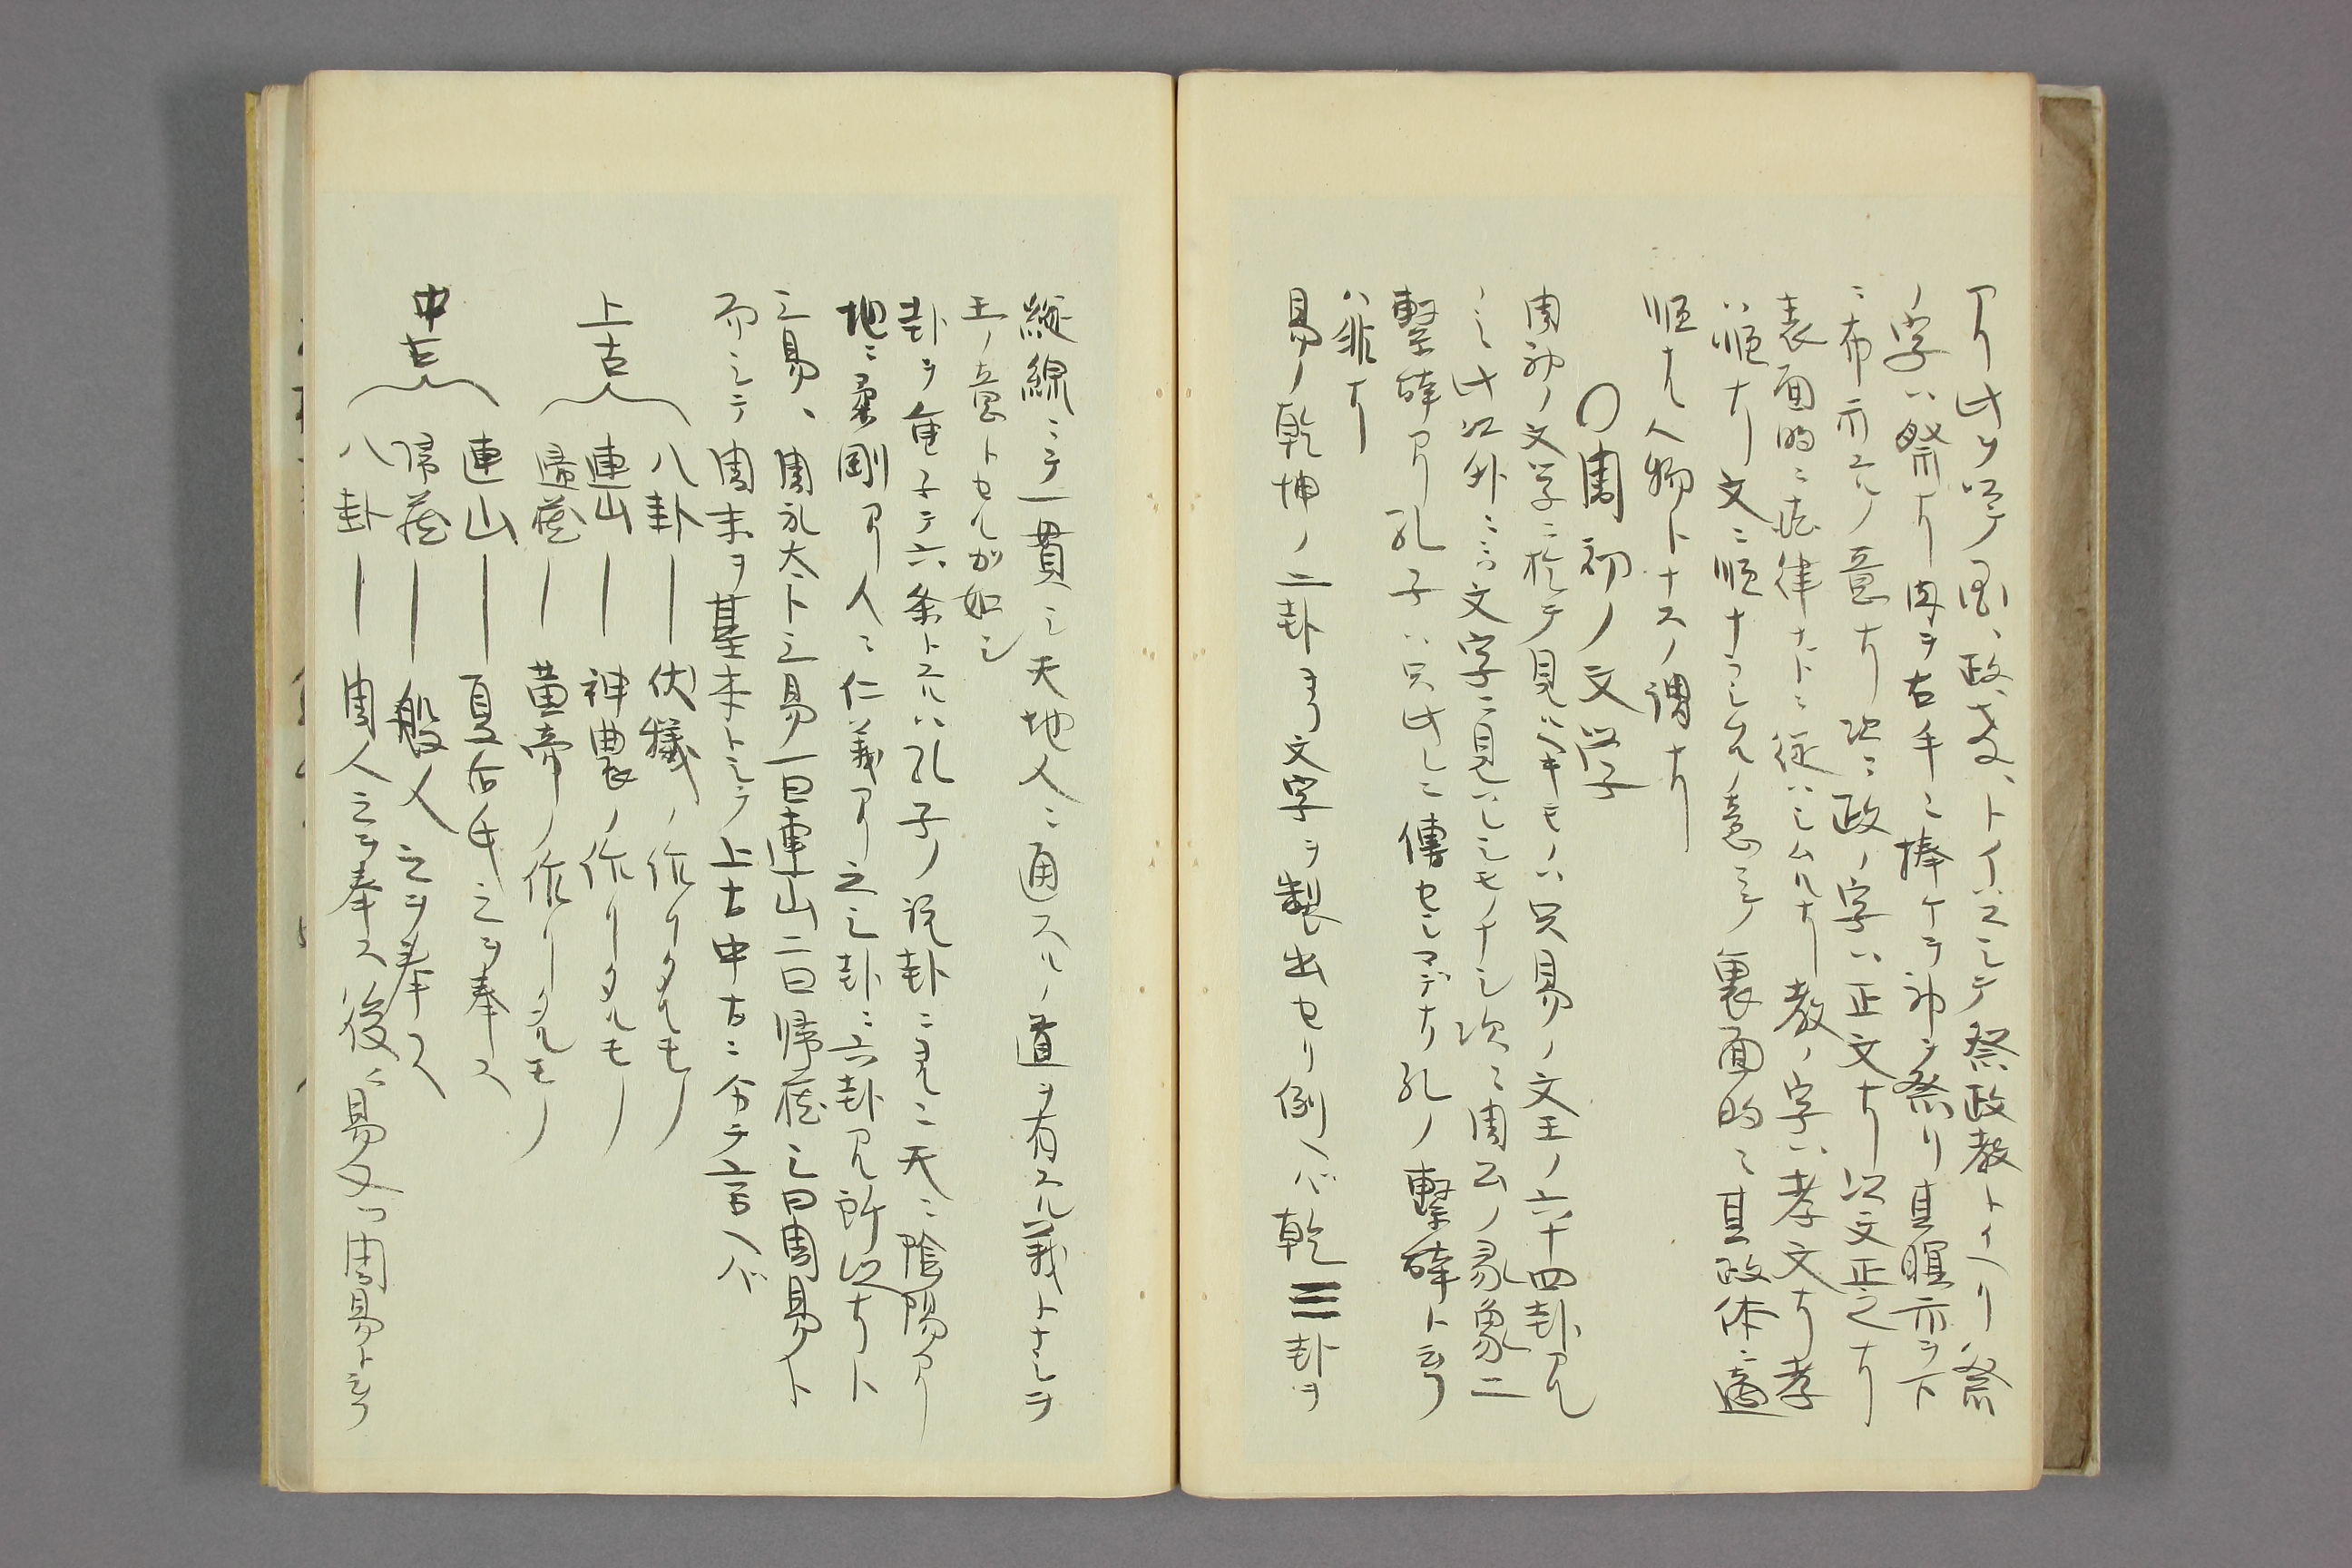 アリ此ヲ以テノ故ニ政、教、トイハズシテ祭政教トイヘリ祭
ノ字ハ祭ナリ肉ヲ右手ニ捧ケテ神ヲ祭リ其暱示ヲ下
ニ布示スルノ意ナリ次ニ政ノ字ハ正文ナリ以文正之ナリ
表面的ニ法律ナドニ従ハシムルナリ教ノ字ハ孝文ナリ孝
ハ順ナリ文ニ順ナラシムルノ意ニテ裏面的ニ其政体ニ適
順ナル人物トナスノ謂ナリ
〇周初ノ文学
周初ノ文学ニ於テ見ルベキモノハ只易ノ文王ノ六十四卦アル
ノミ此以外ニハ文字ニ見ハレシモノナシ次ニ周公ノ彖象ニ
繋辞アリ孔子ハ只此レニ傳セシマデナリ孔ノ繋辞ト云フ
ハ非ナリ
易ノ乾坤ノ二卦ヨリ文字ヲ製出セリ例ヘバ乾☰卦ヲ
縦線ニテ一貫シ天地人ニ通スルノ道ヲ有スル義トナシテ
王ノ意トセルガ如シ
卦ヲ重子テ六条トスルハ孔子ノ説卦ニヨルニ天ニ陰陽アリ
地ニ柔剛アリ人ニ仁義アリ之レ卦ニ六卦アル所以ナリト
三易、周礼太卜三易一曰連山二曰帰蔵三曰周易ト
而シテ周末ヲ基本トシテ上古中古ニ分テ言ヘバ
上古
八卦―伏犠ノ作リタルモノ
連山―神農ノ作リタルモノ
帰蔵―黄帝ノ作リタルモノ
中古
連山―夏后氏之ヲ奉ス
帰蔵―殷人之ヲ奉ス
八卦―周人之ヲ奉ス後ニ易又ハ周易ト云フ